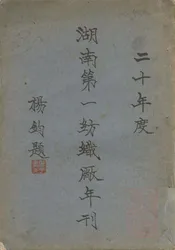 二十年度
湖南第一紡織廠年刊
楊鈞題